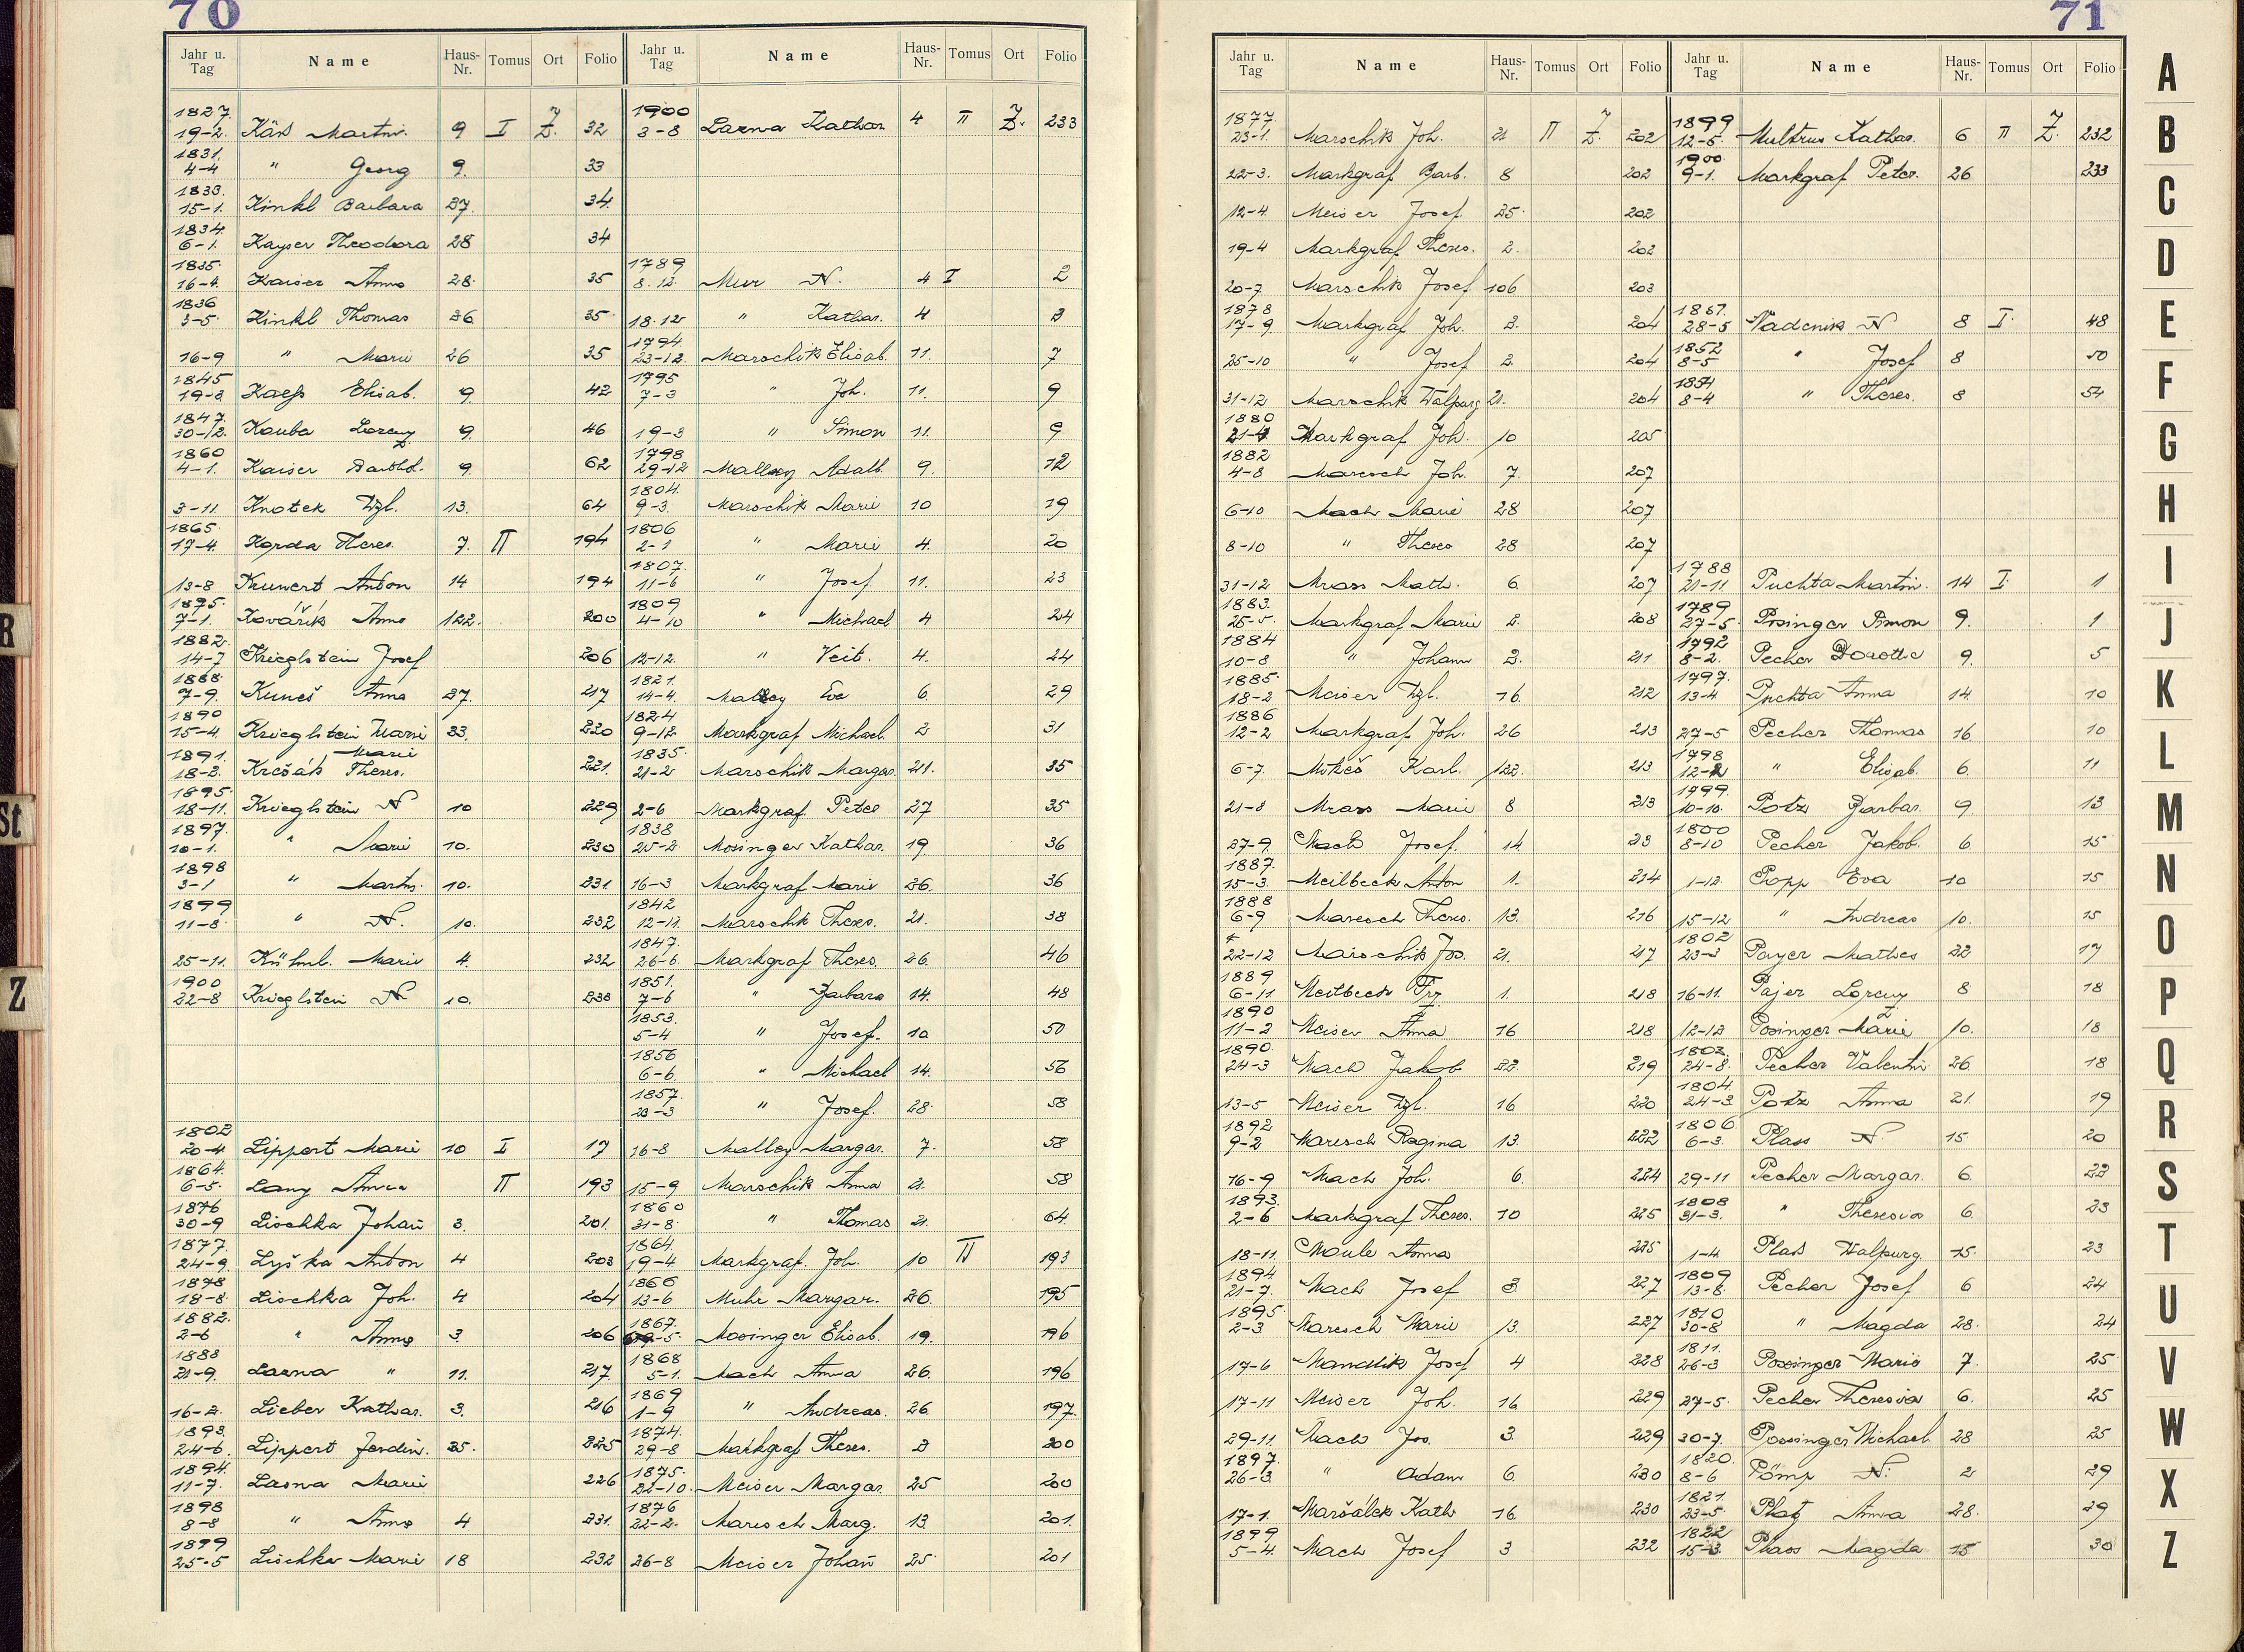 70
Jahr u. Tag Name Haus-Nr. Tomus Ort Folio
1827. 19-2. Käß Martin. 9 I Z. 32
1831. 4-4 " Georg 9. 33
1833. 15-1. Kinkl Barbara 27. 34
1834. 6-1. Kayser Theodora 28 34
1835. 16-4. Kaiser Anna 28. 35
1836 3-5. Kinkl Thomas 26 35
16-9 " Marie 26 35
1845 19-3 Kaeß Elisab. 9. 42
1847. 30-12. Kouba Lorenz 9. 46
1860 4-1. Kaiser Barthol. 9. 62
3-11. Knotek Wzl. 13. 64
1865. 17-4. Korda Theres. 7. II 194
13-8 Kunert Anton 14 194
1875. 7-1. Kovářík Anna 122. 200
1882. 14-7 Krieglstein Josef 206
1888. 7-9. Kuneš Anna 27. 217
1890 15-4. Krieglstein Marie 33. 220
1891. 18-2. Krěšák Marie Theres. 221.
1895. 18-11. Krieglstein N 10 229
1897. 10-1. " Marie 10. 230
1898 3-1 " Martin. 10. 231
1899 11-8. " N. 10. 232
25-11. Kühnl. Marie 4. 232
1900 22-8 Krieglstein N 10. 233
1802 20-4 Lippert Marie 10 I 17
1864. 6-5. Lang Anna II 193
1876 30-9 Lischka Johañ 3. 201.
1877. 24-9. Lyška Anton 4 203
1878 18-8. Lischka Joh. 4 204
1882. 2-6 " Anna 3. 206
1888 21-9. Lasna " 11. 217.
16-2. Lieber Kathar. 3. 216
1893. 24-6. Lippert Ferdin. 25. 225
1894. 11-7. Lasna Marie 226
1898 8-8 " Anna 4 231.
1899 25-5 Lischka Marie 18 232
Jahr u. Tag Name Haus-Nr. Tomus Ort Folio
1900 3-8 Lasna Kathar 4 II Z. 233
1789 8.12. Meur N. 4 I 2
18.12 " Kathar. 4 3
1794. 23-12. Marschik Elisab. 11. 7
1795 7-3 " Joh. 11. 9
19-3 " Simon 11. 9
1798 29-12 Mallezy Adalb. 9. 12
1804. 9-3. Marschik Marie 10 19
1806 2-1 " Marie 4. 20
1807. 11-6 " Josef. 11. 23
1809 4-10 " Michael 4 24
12-12. " Veit. 4. 24
1821. 14-4. Mallezy Eva 6 29
1824 9-12. Markgraf Michael. 2 31
1835. 21-2 Marschik Margar. 21. 35
2-6 Markgraf. Peter 27 35
1838 25-2 Mosinger Kathar. 19. 36
16-3 Markgraf Marie 26. 36
1842 12-11. Marschik Theres. 21. 38
1847. 26-6. Markgraf Theres. 26. 46
1851. 7-6 " Barbara 14. 48
1853. 5-4 " Josef. 10 50
1856 6-6. " Michael 14. 56
1857. 23-3 " Josef. 28. 58
16-8 Malley Margar. 7. 58
15-9 Marschik Anna 21. 58
1860 31-8. " Thomas 21. 64.
1864. 19-4 Markgraf. Joh. 10 II 193
1866 13-6 Muhr Margar. 26. 195
1867. 9-5. Mosinger Elisab. 19. 196
1868 5-1. Mach Anna 26. 196
1869 1-9 " Andreas. 26 197.
1874. 29-8 Markgraf Theres. 2 200
1875. 22-10. Meiser Margar. 25 200
1876 22-2. Maresch Marg. 13. 201.
26-8 Meiser Johañ 25. 201
71
Jahr u. Tag Name Haus-Nr. Tomus Ort Folio
1877. 23-1. Marschik Joh. 21 II Z. 202
22-3. Markgraf Barb. 8 202
12-4. Meiser Josef. 25. 202
19-4 Markgraf Theres. 2. 202
20-7 Marschik Josef 106 203
1878 17-9. Markgraf Joh. 2. 204
25-10 " Josef 2. 204
31-12 Marschik Walpurg 21. 204
1880 21-4 Markgraf Joh. 10 205
1882 4-8 Maresch Joh. 7. 207
6-10 Mach Marie 28 207
8-10 " Theres 28 207
31-12 Mrass Math. 6. 207
1883. 25-5. Markgraf Marie 2. 208
1884 10-8 " Johann 2. 211
1885. 18-2 Meiser Wzl. 16. 212
1886 12-2 Markgraf Joh. 26 213
6-7. Mikeš Karl. 122. 213.
21-8 Mrass Marie 8 213
27-9. Mach Josef. 14. 213
1887. 15-3. Meilbeck Anton 1. 214
1888 6-9 Maresch Theres. 13. 216
22-12 Marschik Jos. 21. 217
1889 6-11 Meilbeck Frz. 1. 218
1890 11-2 Meiser Anna 16 218
1890. 24-3 Mach Jakob 22. 219
13-5 Meiser Wzl. 16 220
1892 9-2 Maresch Regina 13. 222
16-9 Mach Joh. 6. 224
1893. 2-6 Markgraf Theres. 10 225
18-11. Moule Anna 225
1894 21-7. Mach Josef 3. 227
1895. 2-3. Maresch Marie 13. 227
17-6 Mandlik Josef 4 228
17-11 Meiser Joh. 16 229
29-11. Mach Jos. 3. 229
1897. 26-3. " Adam 6. 230
17-1. Maršálek Kath 16 230
1899 5-4. Mach Josef 3 232
Jahr u. Tag Name Haus-Nr. Tomus Ort Folio
1899 12-5. Multrus Kathar. 6 II Z. 232
1900. 9-1. Markgraf Peter. 26 233
28-5 Nadenik N 8 I. 48
1852 8-5 " Josef 8 50
1854 8-4 " Theres. 8 54
1788 21-11. Puchta Martin. 14 I. 1
1789 27-5. Posinger Simon 9. 1
1792 8-2. Pecher Dorothe 9. 5
1797. 13-4 Puchta Anna 14 10
27-5 Pecher Thomas 16. 10
1798 12-2 " Elisab. 6. 11
1799. 10-10. Potz Barbar. 9. 13
1800 8-10 Pecher Jakob. 6 15
1-12. Popp Eva 10 15
15-12 " Andreas 10. 15
1802 23-3 Payer Mathes 22 17
16-11. Pajer Lorenz 8 18
12-12 Posinger Marie 10. 18
1803. 24-8. Pecher Valentin 26 18
1804. 24-3. Potz Anna 21. 19
1806. 6-3. Plass N. 15 20
29-11 Pecher Margar. 6. 22
1808 31-3. " Theresia 6. 23
1-4. Plaß Walpurg. 15. 23
1809 13-8. Pecher Josef 6 24
1810 30-8 " Magda 28. 24
1811. 26-3 Possinger Marie 7. 25
27-5. Pecher Theresia 6. 25
30-7. Possinger Michael. 28 25
1820. 8-6 Pömp N. 2 29
1821. 23-5. Platz Anna 28. 29
1822 15-3. Plass Magda 15 30
A
B
C
D
E
F
G
H
I
J
K
L
M
N
O
P
Q
R
S
T
U
V
W
X
Z
R
St
Z